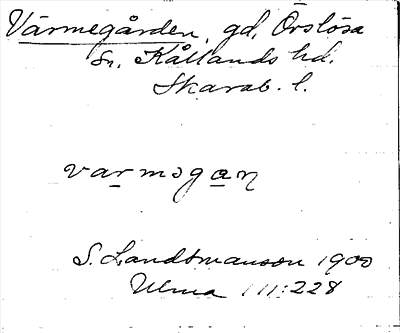 Värmegården, gd, Örslösa
sn. Kållands hd.
Skarab. l.
varməgan
S. Landtmanson 1900
Ulma 111:228